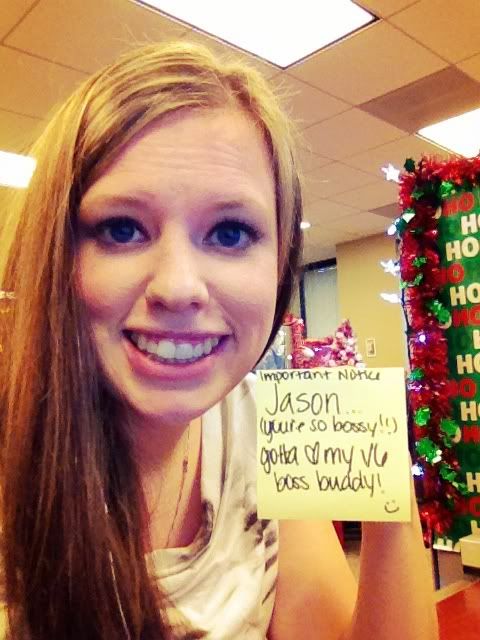 Important Notice
Jason...
(you're so bossy!!)
gotta ♡ my V6
boss buddy!
HO
HO
HO
HO
HO
HO
HO
HO
HO